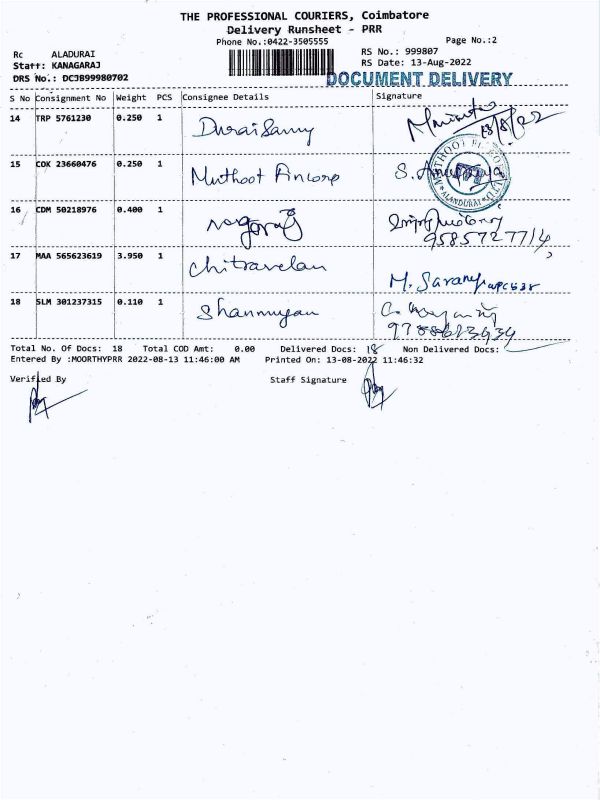 THE PROFESSIONAL COURIERS, Coimbatore
Delivery Runsheet - PRR
Phone No.:0422-3505555
Page No.:2
Rc ALADURAI
RS No.: 999807
Staff: KANAGARAJ
RS Date: 13-Aug-2022
DRS No.: DCJB99980702
DOCUMENT DELIVERY
S No Consignment No Weight PCS Consignee Details Signature
14 TRP 5761230 0.250 1 DuraiSamy
15 COK 23660476 0.250 1 Muthoot Fincorp S.
ALANDURAI
16 CDM 50218976 0.400 1 nagaraj
9585727714
17 MAA 565623619 3.950 1 Chitravelan M. Saranya
18 SLM 301237315 0.110 1 Shanmugam
Total No. Of Docs: 18 Total COD Amt: 0.00 Delivered Docs: 18 Non Delivered Docs:
Entered By :MOORTHYPRR 2022-08-13 11:46:00 AM Printed On: 13-08-2022 11:46:32
Verified By Staff Signature